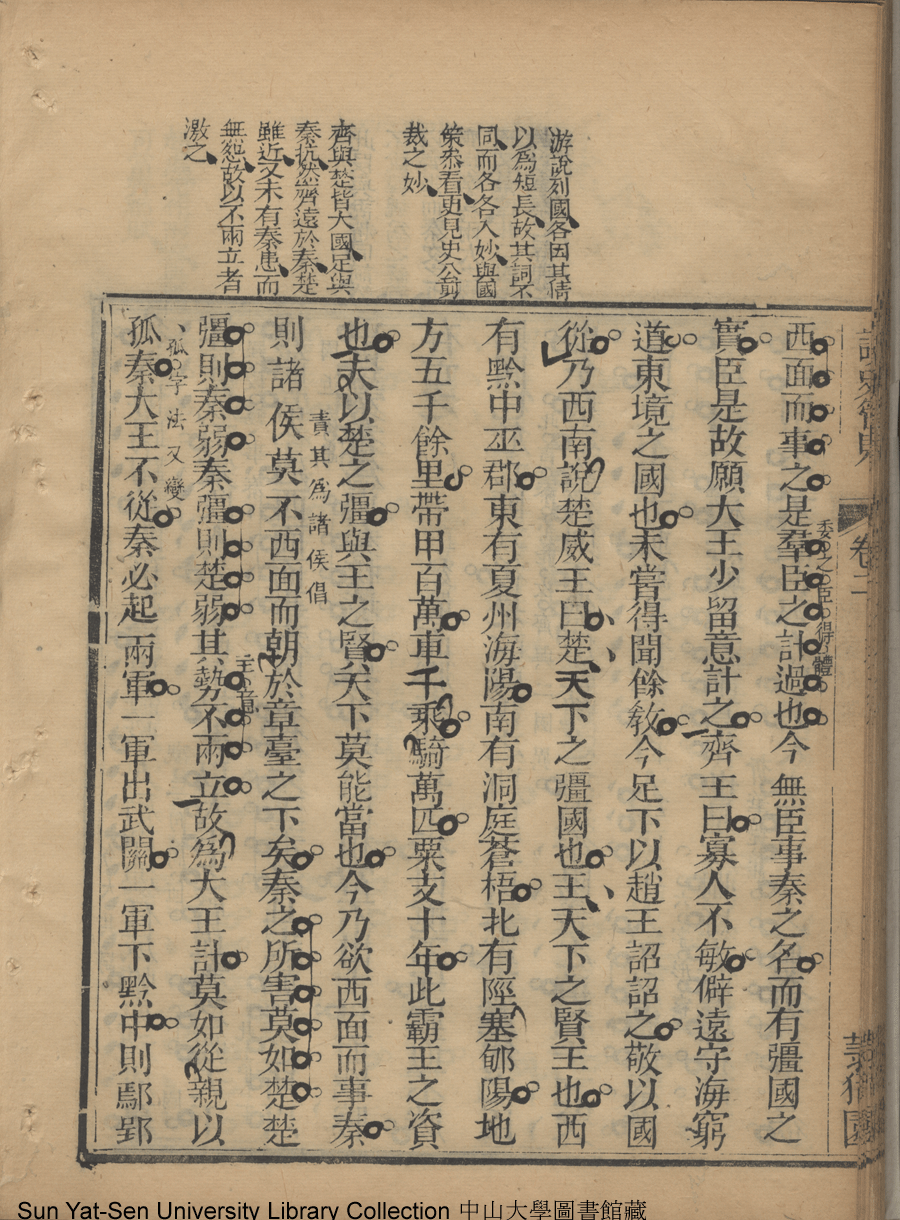 游說列國各因其情
以爲短長故其詞不
同而各各入妙與國
策叅看更見史公剪
裁之妙
齊與楚皆大國足與
秦抗然齊遠於秦楚
雖近又未有秦患而
無怨故以不兩立者
激之
卷二
西面而事之是羣臣之計過也今無臣事秦之名而有彊國之
委之臣得體
實臣是故願大王少留意計之齊王曰寡人不敏僻遠守海窮
道東境之國也未嘗得聞餘敎今足下以趙王詔詔之敬以國
從乃西南說楚威王曰楚天下之彊國也王天下之賢王也西
有黔中巫郡東有夏州海陽南有洞庭蒼梧北有陘塞郇陽地
方五千餘里帶甲百萬車千乘騎萬匹粟支十年此霸王之資
也夫以楚之彊與王之賢天下莫能當也今乃欲西面而事秦
責其爲諸侯倡
則諸侯莫不西面而朝於章臺之下矣秦之所害莫如楚楚
主意
彊則秦弱秦彊則楚弱其勢不兩立故爲大王計莫如從親以
孤字法又變
孤秦大王不從秦必起兩軍一軍出武關一軍下黔中則鄢郢
Sun Yat-Sen University Library Collection 中山大學圖書館藏